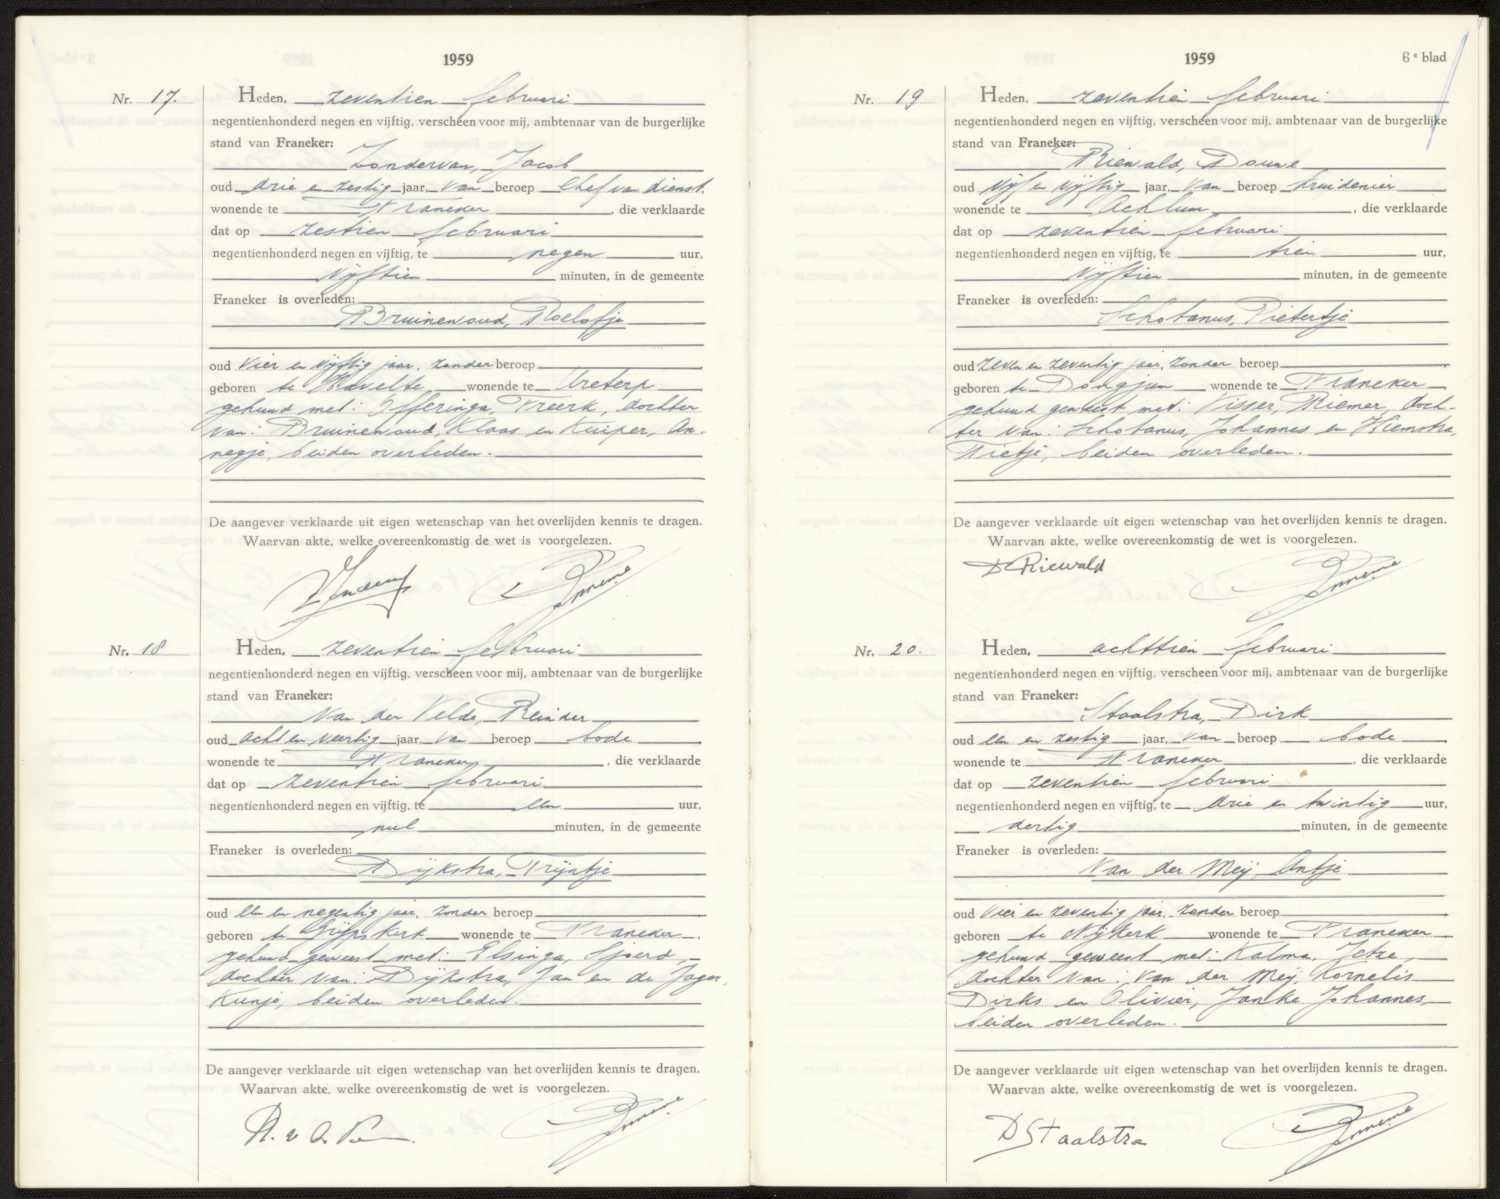 1959
Nr. 17. Heden, zeventien februari
negentienhonderd negen en vijftig, verscheen voor mij, ambtenaar van de burgerlijke
stand van Franeker:
Zondervan, Jacob
oud drie en zestig jaar, van beroep Chef van dienst,
wonende te Franeker, die verklaarde
dat op zestien februari
negentienhonderd negen en vijftig, te negen uur,
vijftien minuten, in de gemeente
Franeker is overleden:
Bruinewoud, Roelofje
oud vier en vijftig jaar, zonder beroep
geboren te Havelte, wonende te Ureterp
gehuwd met: Offeringa, Freerk, dochter
van: Bruinewoud, Klaas en Kuiper, An-
negje, beiden overleden.
De aangever verklaarde uit eigen wetenschap van het overlijden kennis te dragen.
Waarvan akte, welke overeenkomstig de wet is voorgelezen.
Nr. 18 Heden, zeventien februari
negentienhonderd negen en vijftig, verscheen voor mij, ambtenaar van de burgerlijke
stand van Franeker:
Van der Velde, Reinder
oud acht en veertig jaar, van beroep bode,
wonende te Franeker, die verklaarde
dat op zeventien februari
negentienhonderd negen en vijftig, te een uur,
nul minuten, in de gemeente
Franeker is overleden:
Dijkstra, Trijntje
oud een en negentig jaar, zonder beroep
geboren te Gijpskerk wonende te Franeker.
gehuwd geweest met: Elsinga, Sjoerd,
dochter van: Dijkstra, Jan en de Jager,
Kunje, beiden overleden.
De aangever verklaarde uit eigen wetenschap van het overlijden kennis te dragen.
Waarvan akte, welke overeenkomstig de wet is voorgelezen.
1959 6e blad
Nr. 19 Heden, zeventien februari
negentienhonderd negen en vijftig, verscheen voor mij, ambtenaar van de burgerlijke
stand van Franeker:
Riewald, Douwe
oud vijf en vijftig jaar, van beroep kruidenier
wonende te Achlum, die verklaarde
dat op zeventien februari
negentienhonderd negen en vijftig, te tien uur,
vijftien minuten, in de gemeente
Franeker is overleden:
Schotanus, Pietertje
oud zeven en zeventig jaar, zonder beroep
geboren te Dongjum wonende te Franeker
gehuwd geweest met: Visser, Riemer, doch-
ter van: Schotanus, Johannes en Hiemstra,
Fietje, beiden overleden.
De aangever verklaarde uit eigen wetenschap van het overlijden kennis te dragen.
Waarvan akte, welke overeenkomstig de wet is voorgelezen.
D Riewald
Nr. 20. Heden, achttien februari
negentienhonderd negen en vijftig, verscheen voor mij, ambtenaar van de burgerlijke
stand van Franeker:
Staalstra, Dirk
oud een en zestig jaar, van beroep bode,
wonende te Franeker, die verklaarde
dat op zeventien februari
negentienhonderd negen en vijftig, te drie en twintig uur,
dertig minuten, in de gemeente
Franeker is overleden:
Van der Meij, Antje
oud vier en zeventig jaar, zonder beroep
geboren te Nijkerk wonende te Franeker
gehuwd geweest met: Kalma, Jetze,
dochter van: Van der Meij, Kornelis
Dirks en Olivier, Janke Johannes,
beiden overleden.
De aangever verklaarde uit eigen wetenschap van het overlijden kennis te dragen.
Waarvan akte, welke overeenkomstig de wet is voorgelezen.
D Staalstra